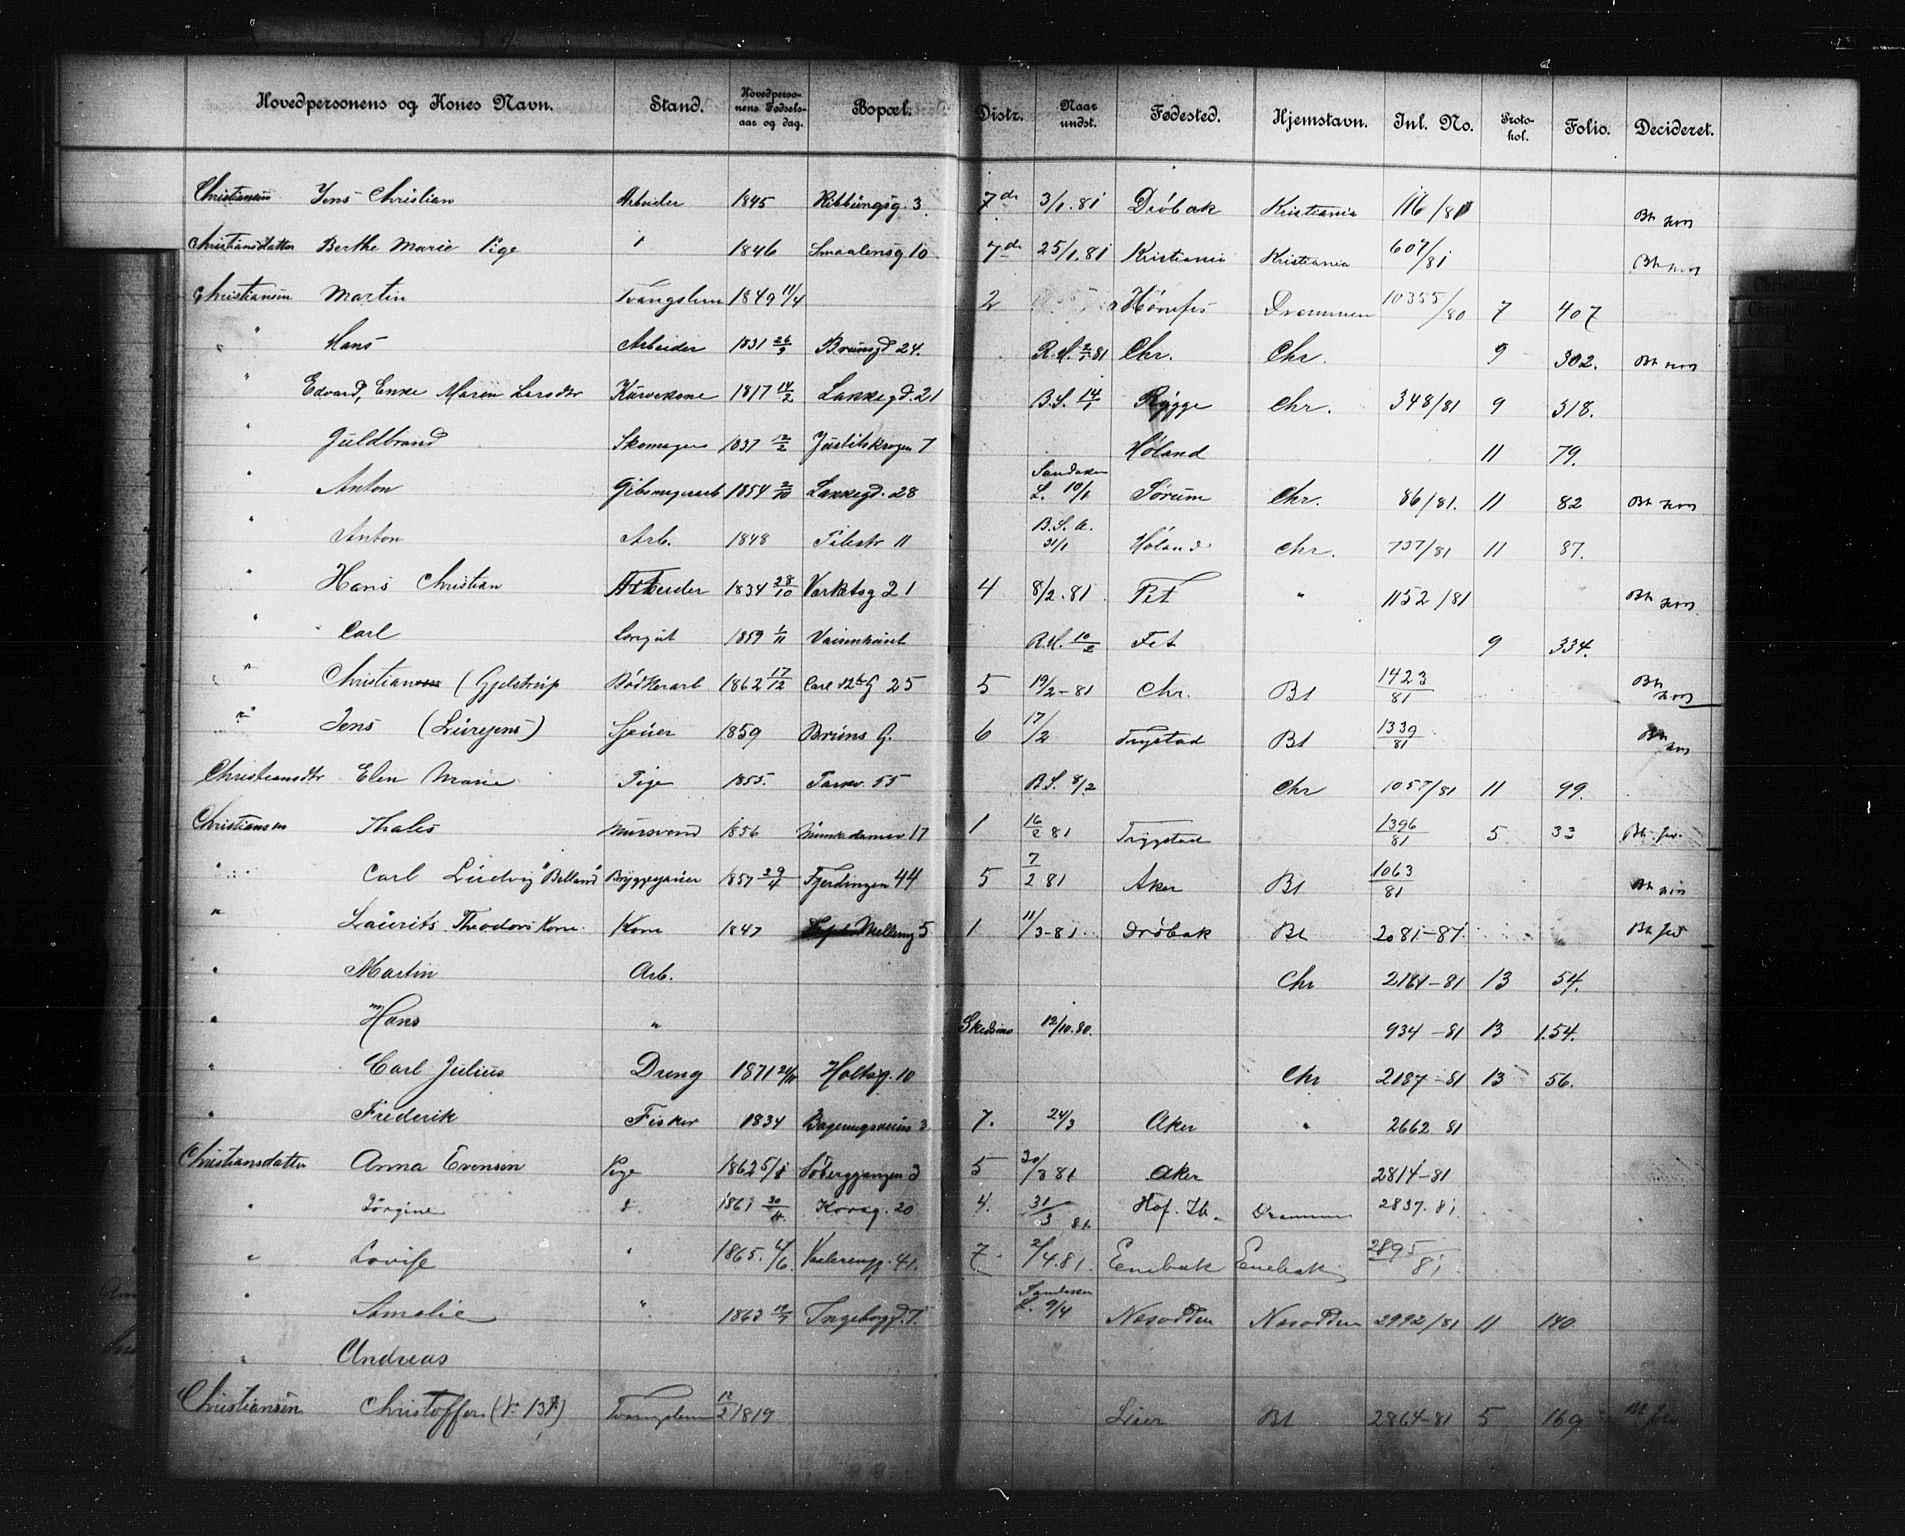 Hovedpersonens og Kones Navn. Stand. Hovedperso-nens Fødsels-aar og dag. Bopæl. Distr. Naar undst. Fødested. Hjemstavn. Inl. No. Proto-kol. Folio. Decideret.
Christiansen Jens Christian Arbeider 1845 Ribbungsg. 3. 7de 3/1.81 Drøbak Kristiania 116/81
Christiansdatter Berthe Marie Pige 1846 Smaalensg 10 7de 25/1.81 Kristiania Kristiania 607/81
Christiansen Martin 1849 11/4 2 Drammen 10355/80 7 407
" Hans Arbeider 1831 Brunsgd 24. R.H. 81 Chr. Chr. 9 302.
" Edvard, Enke Maren Larsdtr Kurvekone 1817 14/2 Lakkegd. 21 B.S. 14/1 Rygge Chr. 348/81 9 318.
" Guldbrand Skomager 1837 12/2 Justitskrogen 7 Høland 11 79.
" Anton 1854 Lakkegd. 28 Sandaker L. 10/1 Sørum Chr. 86/81. 11 82
" Anton Arb. 1848 Pilestr 11 B.S.A. 31/1 Høland Chr. 737/81 11 87.
" Hans Christian Arbeider 1834 28/10 Verkstsg 21 4 8/2.81 Fet " 1152/81
" Carl 1859 1/11 Vaisenhuset R.H. 10/2 Fet 9 334.
" Christian (Gjelstrup Bødkerarb 1862 17/12 Carl 12te G 25 5 19/2-81 Chr. Bt 1423/81
" Jens Sjauer 1859 Bruns G. 6 17/2 Trygstad Bt 1339/81
Christiansdtr Elen Marie Pige 1855. 55 B.S. 8/2 Chr 1057/81 11 99.
Christiansen Thales Mursvend 1856 Munkedamsv. 17 1 16/2 81 Trygstad 1396/81 5 33
" Carl Ludvig Bryggesjauer 1857 29/4 Fjerdingen 44 5 7/2 81 Aker Bt 1063/81
" Laurits Theodors Kone Kone 1847 5 1 11/3-81 Drøbak Bt 2081-81
" Martin Arb. Chr 2161-81 13 54.
" Hans " Skedsmo 12/10.80. 934-81 13 154.
" Carl Julius Dreng 1871 Holtsg. 10 Chr 2187-81 13 56.
" Frederik Fisker 1834 3 7. 24/3 Aker " 2662 81
Christiansdatter Anna Evensen Pige 1862 Søberggangen 5 30/3 81 Aker 2814-81
" Jørgine 1861 30/ Korsg. 20 4. 31/3 81 Hof. Drammen 2837.81
" Lovise " 1865. Vaalerengg. 41. 7 2/4.81. Enebak Enebak 2895/81
" Amalie " 1863 Ingeborggd. 7. Sandaker L. 9/4 Nesodden Nesodden 2992/81 11 140
" Andreas
Christiansen Christoffer Tvangslem 12/2 1819 Lier Bt 2864-81 5 169